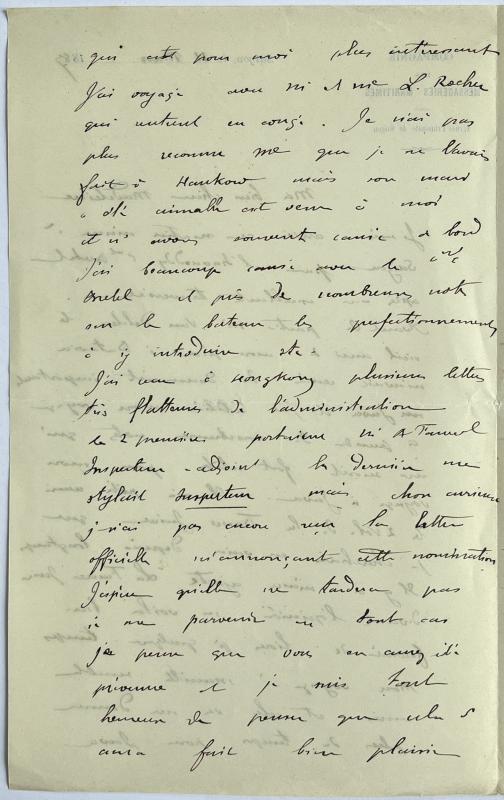 qui est pour moi plus intéressant
J'ai voyagé avec Mr et Me L. Rocher
qui rentrent en congé. Je n'ai pas
plus reconnu Me que je ne l'avais
fait à Hankow mais son mari
a été aimable est venu à moi
et ns avons souvent causé à bord
J'ai beaucoup causé avec le
et pris de nombreuses notes
sur le bateau les perfectionnements
à y introduire etc
J'ai reçu à Hongkong plusieurs lettres
très flatteuses de l'administration
les 2 premières portaient Mr A
Inspecteur-adjoint la dernière me
stylait Inspecteur mais chose curieuse
je n'ai pas encore reçu la lettre
officielle m'annonçant cette nomination
J'espère qu'elle ne tardera pas
à me parvenir en tout cas
je pense que vous en aurez été
prévenue et je suis tout
heureux de penser que cela
aura fait bien plaisir